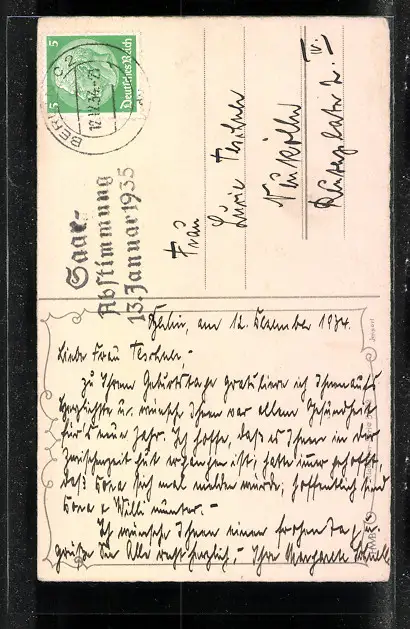 5 5
Deutsches Reich
BERLIN C 2
12.12.34
Saar-
Abstimmung
13. Januar 1935
Frau
Neukölln
Berlin, am 12. Dezember 1934.
Liebe Frau
zu Ihrem Geburtstage gratuliere ich Ihnen aufs
herzlichste u. wünsche Ihnen vor allem Gesundheit
fürs neue Jahr. Ich hoffe, daß es Ihnen in der
Zwischenzeit gut ergangen ist; hatte immer gehofft,
daß sich mal melden würde; hoffentlich sind
& Willi munter. -
Ich wünsche Ihnen einen frohen Tag u.
grüße Sie Alle recht herzlich, - Ihre Margarete